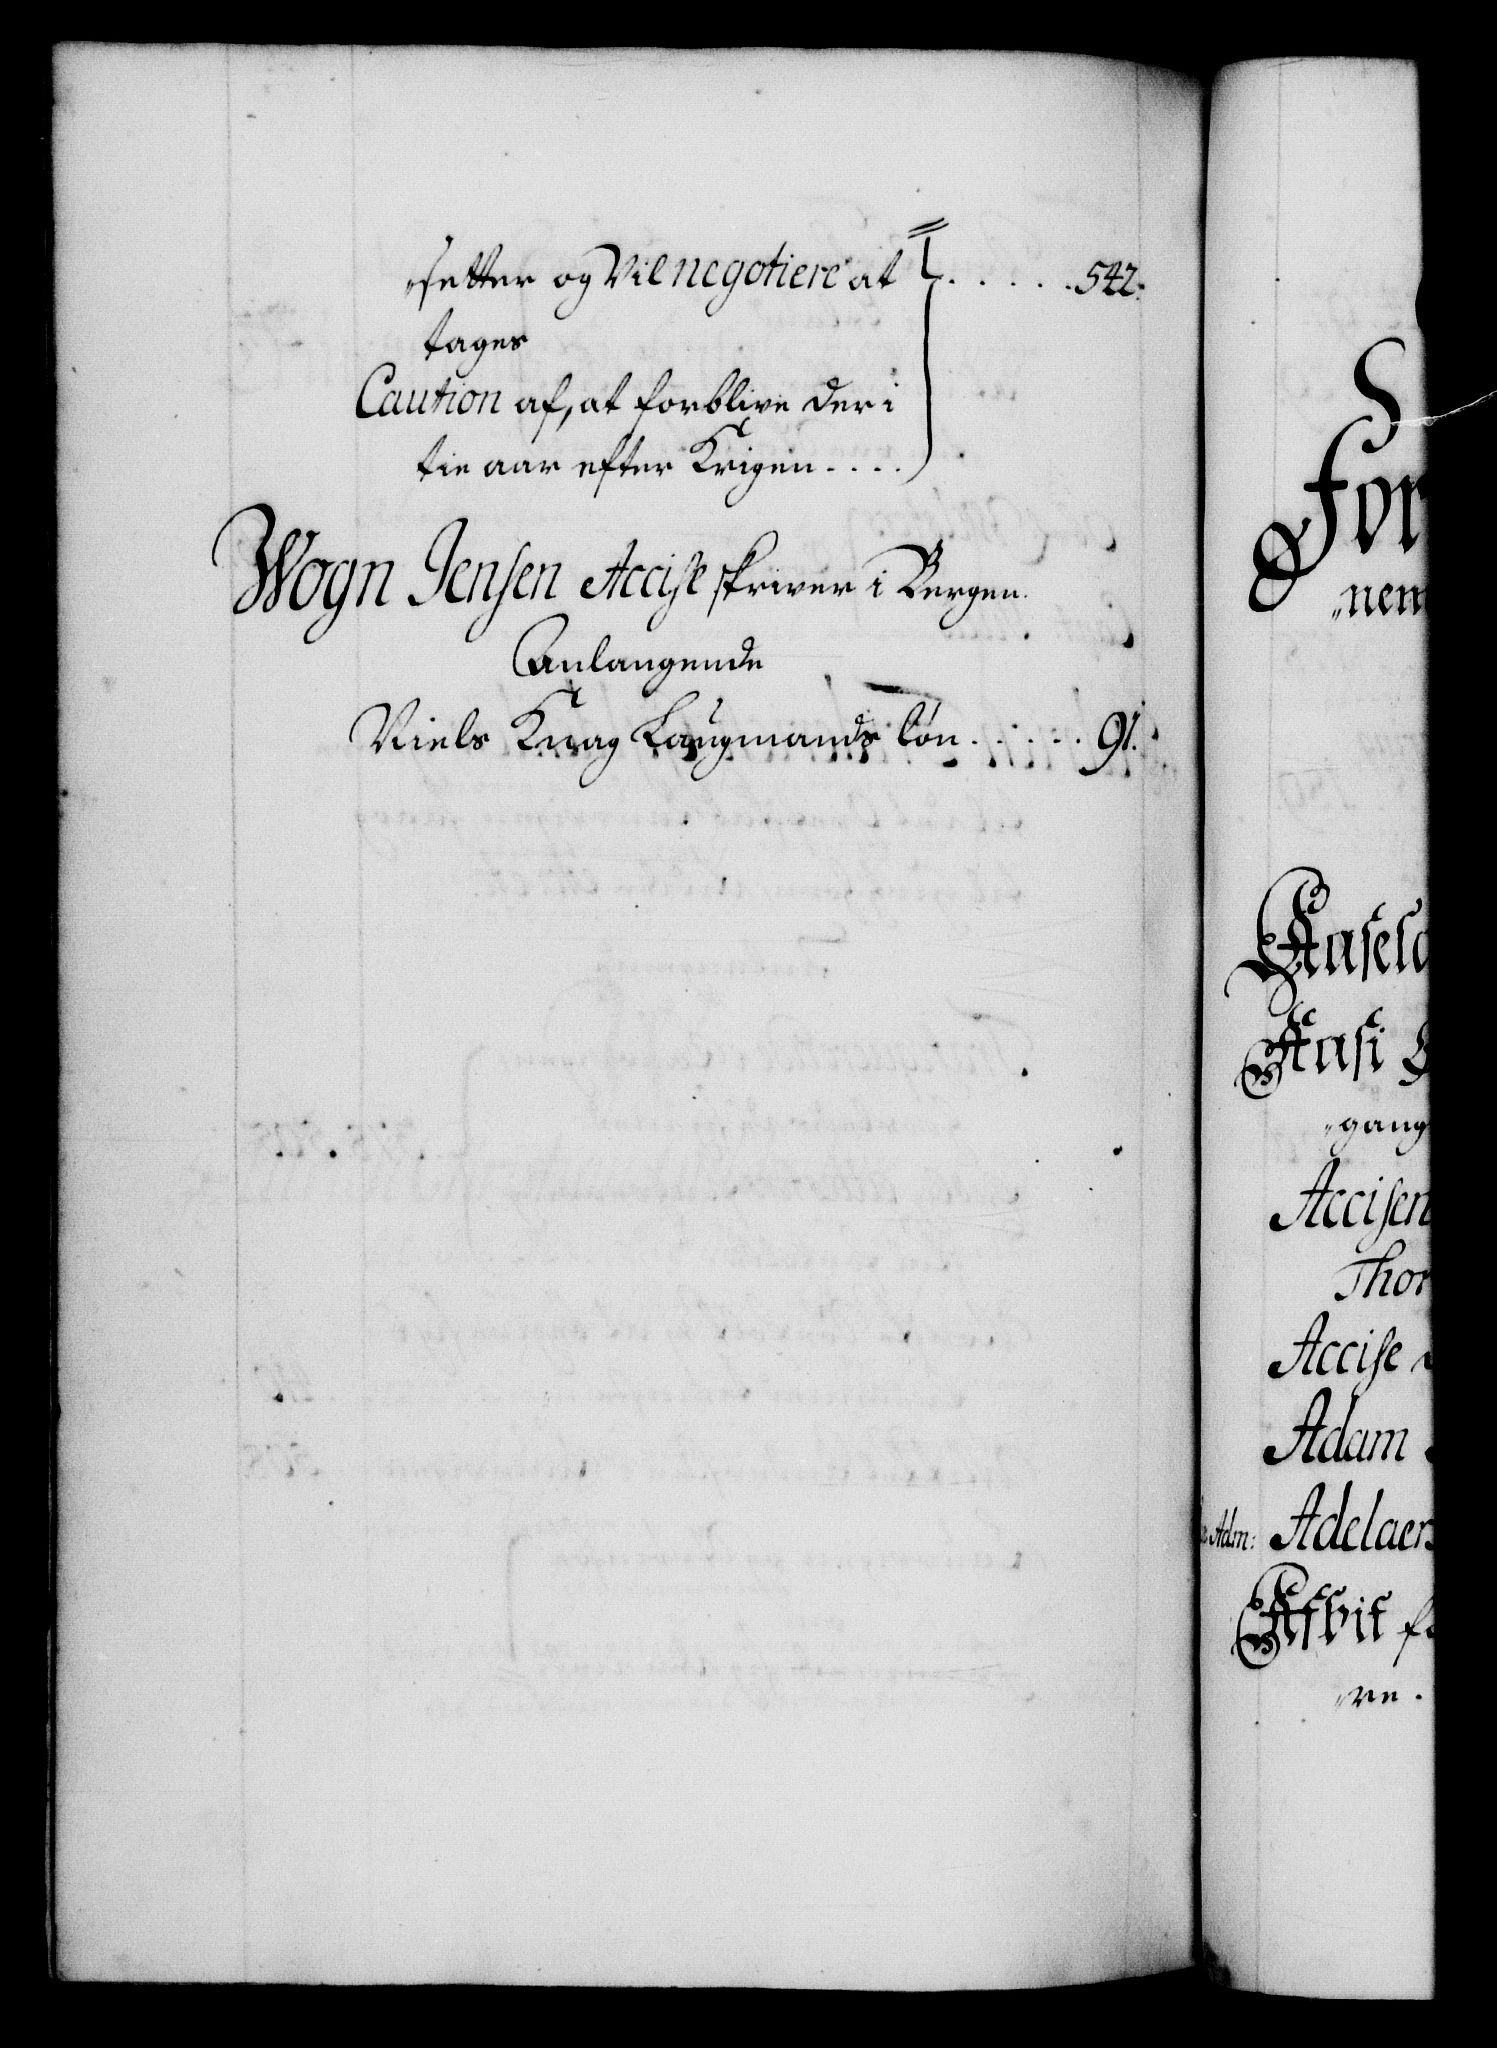 "setter og Vil negotiere at . . . . . 542.
tages
Caution af, at forblive der i
tie aar efter Krigen . . . .
Wogn Jensen Accise skriver i Bergen.
Anlangende
Niels Knag Laugmands lön . . . . . 91.
For
"nem
Aasi
"gang
Accisen
Thor
Accise
Adam
Adm: Adelaers
Afbit
"re.